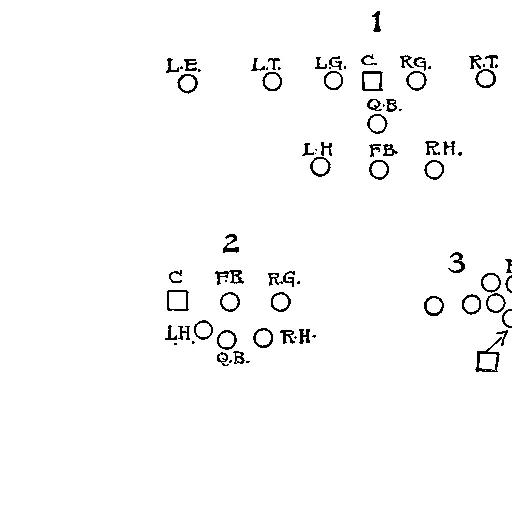 1
L.E. L.T. L.G. C. R.G. R.T.
Q.B.
L.H F.B. R.H.
2
C F.B. R.G.
L.H. R.H.
Q.B.
3